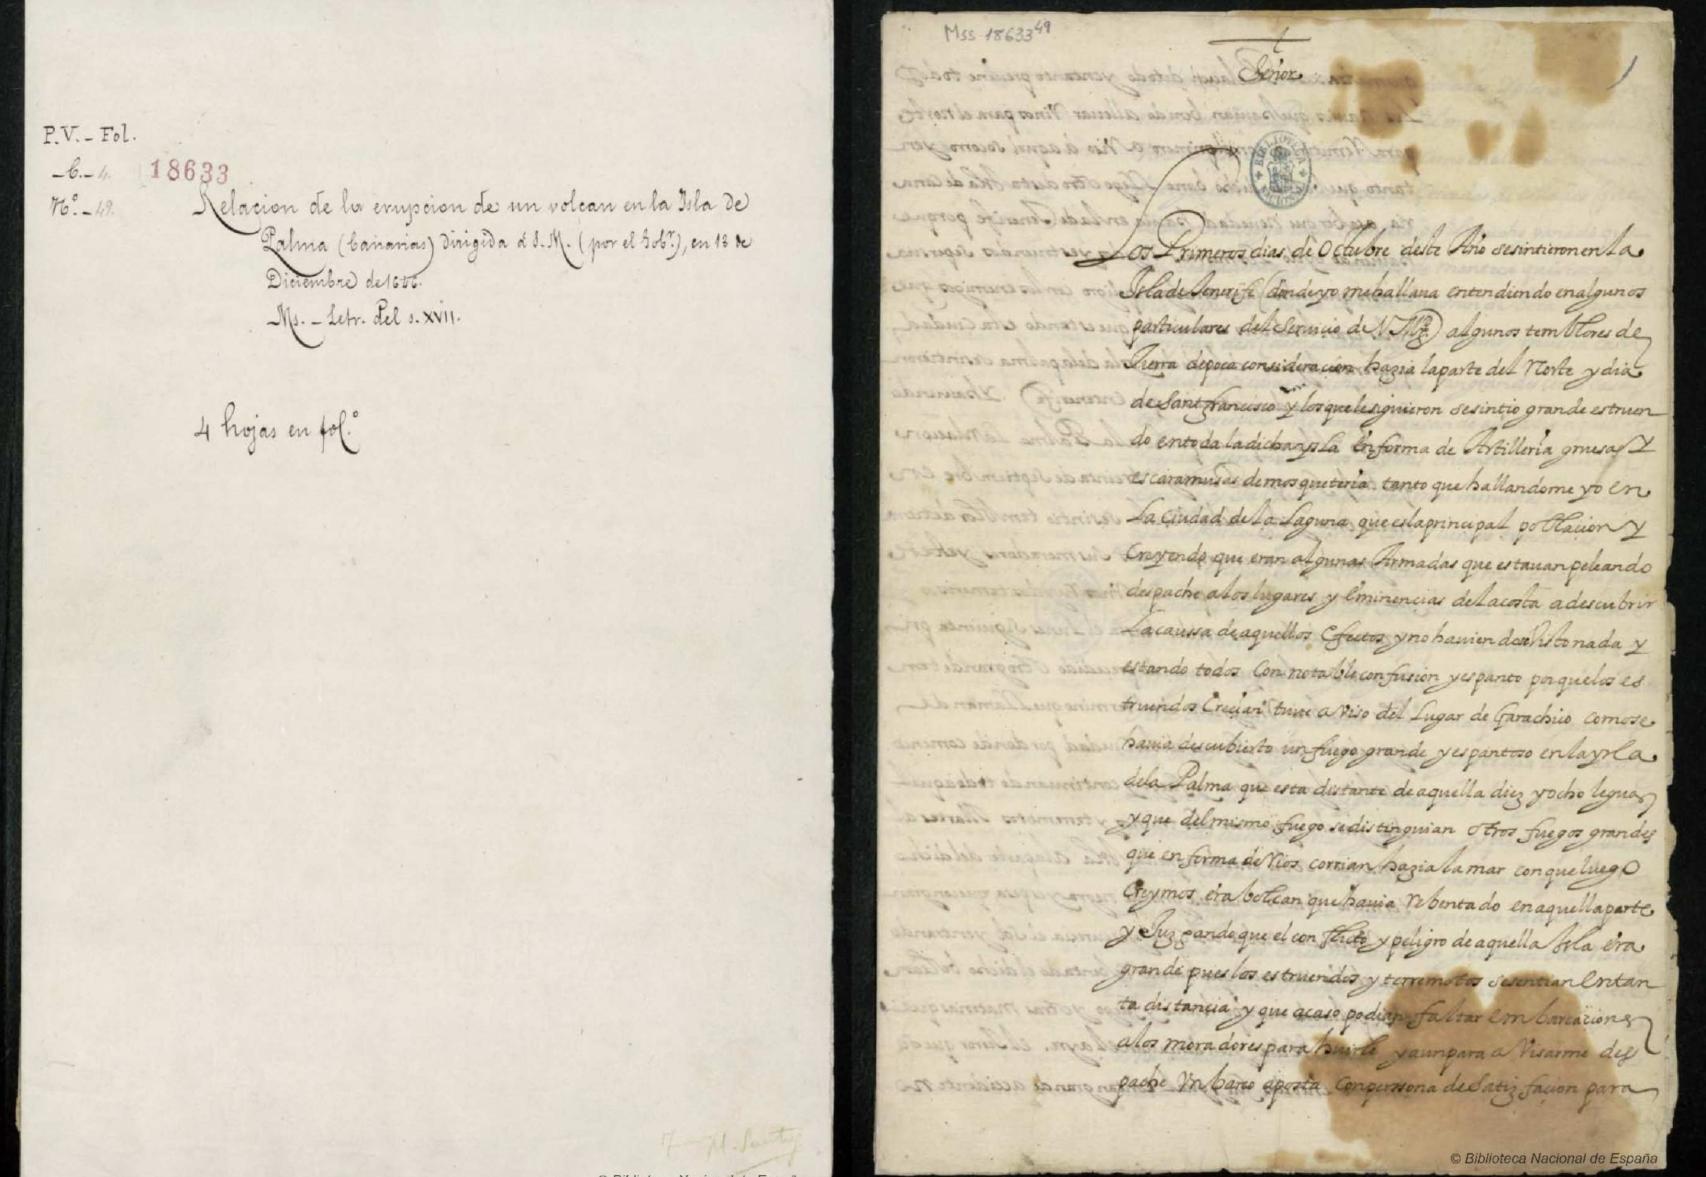 P.V. - Fol.
-C.- 4.
Nº.- 49.
18633
Relacion de la erupcion de un volcan en la Isla de
Palma (Canarias) dirigida á S.M. (por el Gobr.), en 13 de
Diciembre de 1646.
Ms. - Letr. del s. XVII.
4 hojas en fol.º
Mss 18633 49
1
Señor
BIBLIOTECA NACIONAL
Los Primeros dias de Octubre deste Año sesintieron en la
Isla de Tenerife (donde yo me hallaua entendiendo en algunos
particulares del Seruicio de V Mgd.) algunos temblores de
Tierra de poca consideracion hazia la parte del Norte y dia
de Sant francisco y los que le siguieron se sintio grande estruen
do en toda la dicha ysla En forma de Artilleria gruesa Y
escaramusas de mosqueteria tanto que hallandome yo en
La Ciudad de la Laguna que es la principal poblacion Y
Creyendo que eran algunas Armadas que estauan peleando
despache a los lugares y Eminencias de la costa a descubrir
La caussa de aquellos Efectos y no hauiendose Visto nada y
estando todos Con notable confusion y espanto porque los es
truendos Crecian tuue aViso del Lugar de Garachico como se
hauia descubierto un fuego grande y espantoso en la ysla
de la Palma que esta distante de aquella diez y ocho leguas
y que del mismo fuego se distinguian otros fuegos grandes
que en forma de Rios corrian hazia la mar con que luego
Creymos era bolcan que hauia Rebentado en aquella parte
y Juzgando que el conflicto y peligro de aquella Isla era
grande pues los estruendos y terremotos se sentian En tan
ta distancia y que acaso podian faltar embarcaciones
a los moradores para huirle y aun para aVisarme des
pache Vn barco aposta Con perssona de Satisfacion para
© Biblioteca Nacional de España